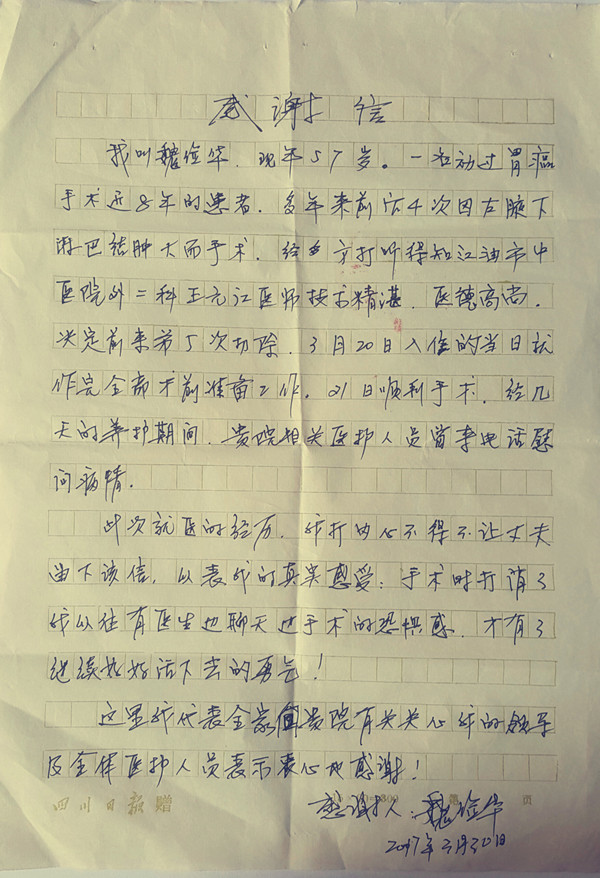 感谢信
我叫魏俭华，现年57岁。一名动过胃癌
手术近8年的患者，多年来前后4次因左腋下
淋巴结肿大而手术，经多方打听得知江油市中
医院外二科王元江医师技术精湛，医德高尚，
决定前来第5次切除，3月20日入住的当日就
作完全部术前准备工作，21日顺利手术，经几
天的养护期间，贵院相关医护人员常来电话慰
问病情，
此次就医的经历，我打内心不得不让丈夫
由下该信，以表我的真实感受：手术时打消了
我以往有医生边聊天边手术的恐惧感，才有了
继续好好活下去的勇气！
这里我代表全家向贵院有关关心我的领导
及全体医护人员表示衷心地感谢！
四川日报赠 300 第 页
感谢人：魏俭华
2017年3月30日